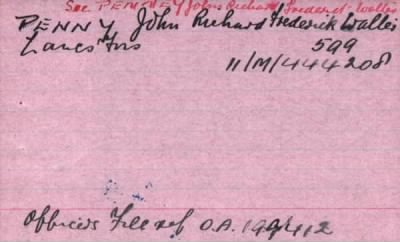 See PENNEY John Richard Frederick Wallis
PENNY John Richard Frederick Wallis
Lancs Fus 599
11/M/444208
Officers File ref O.A.